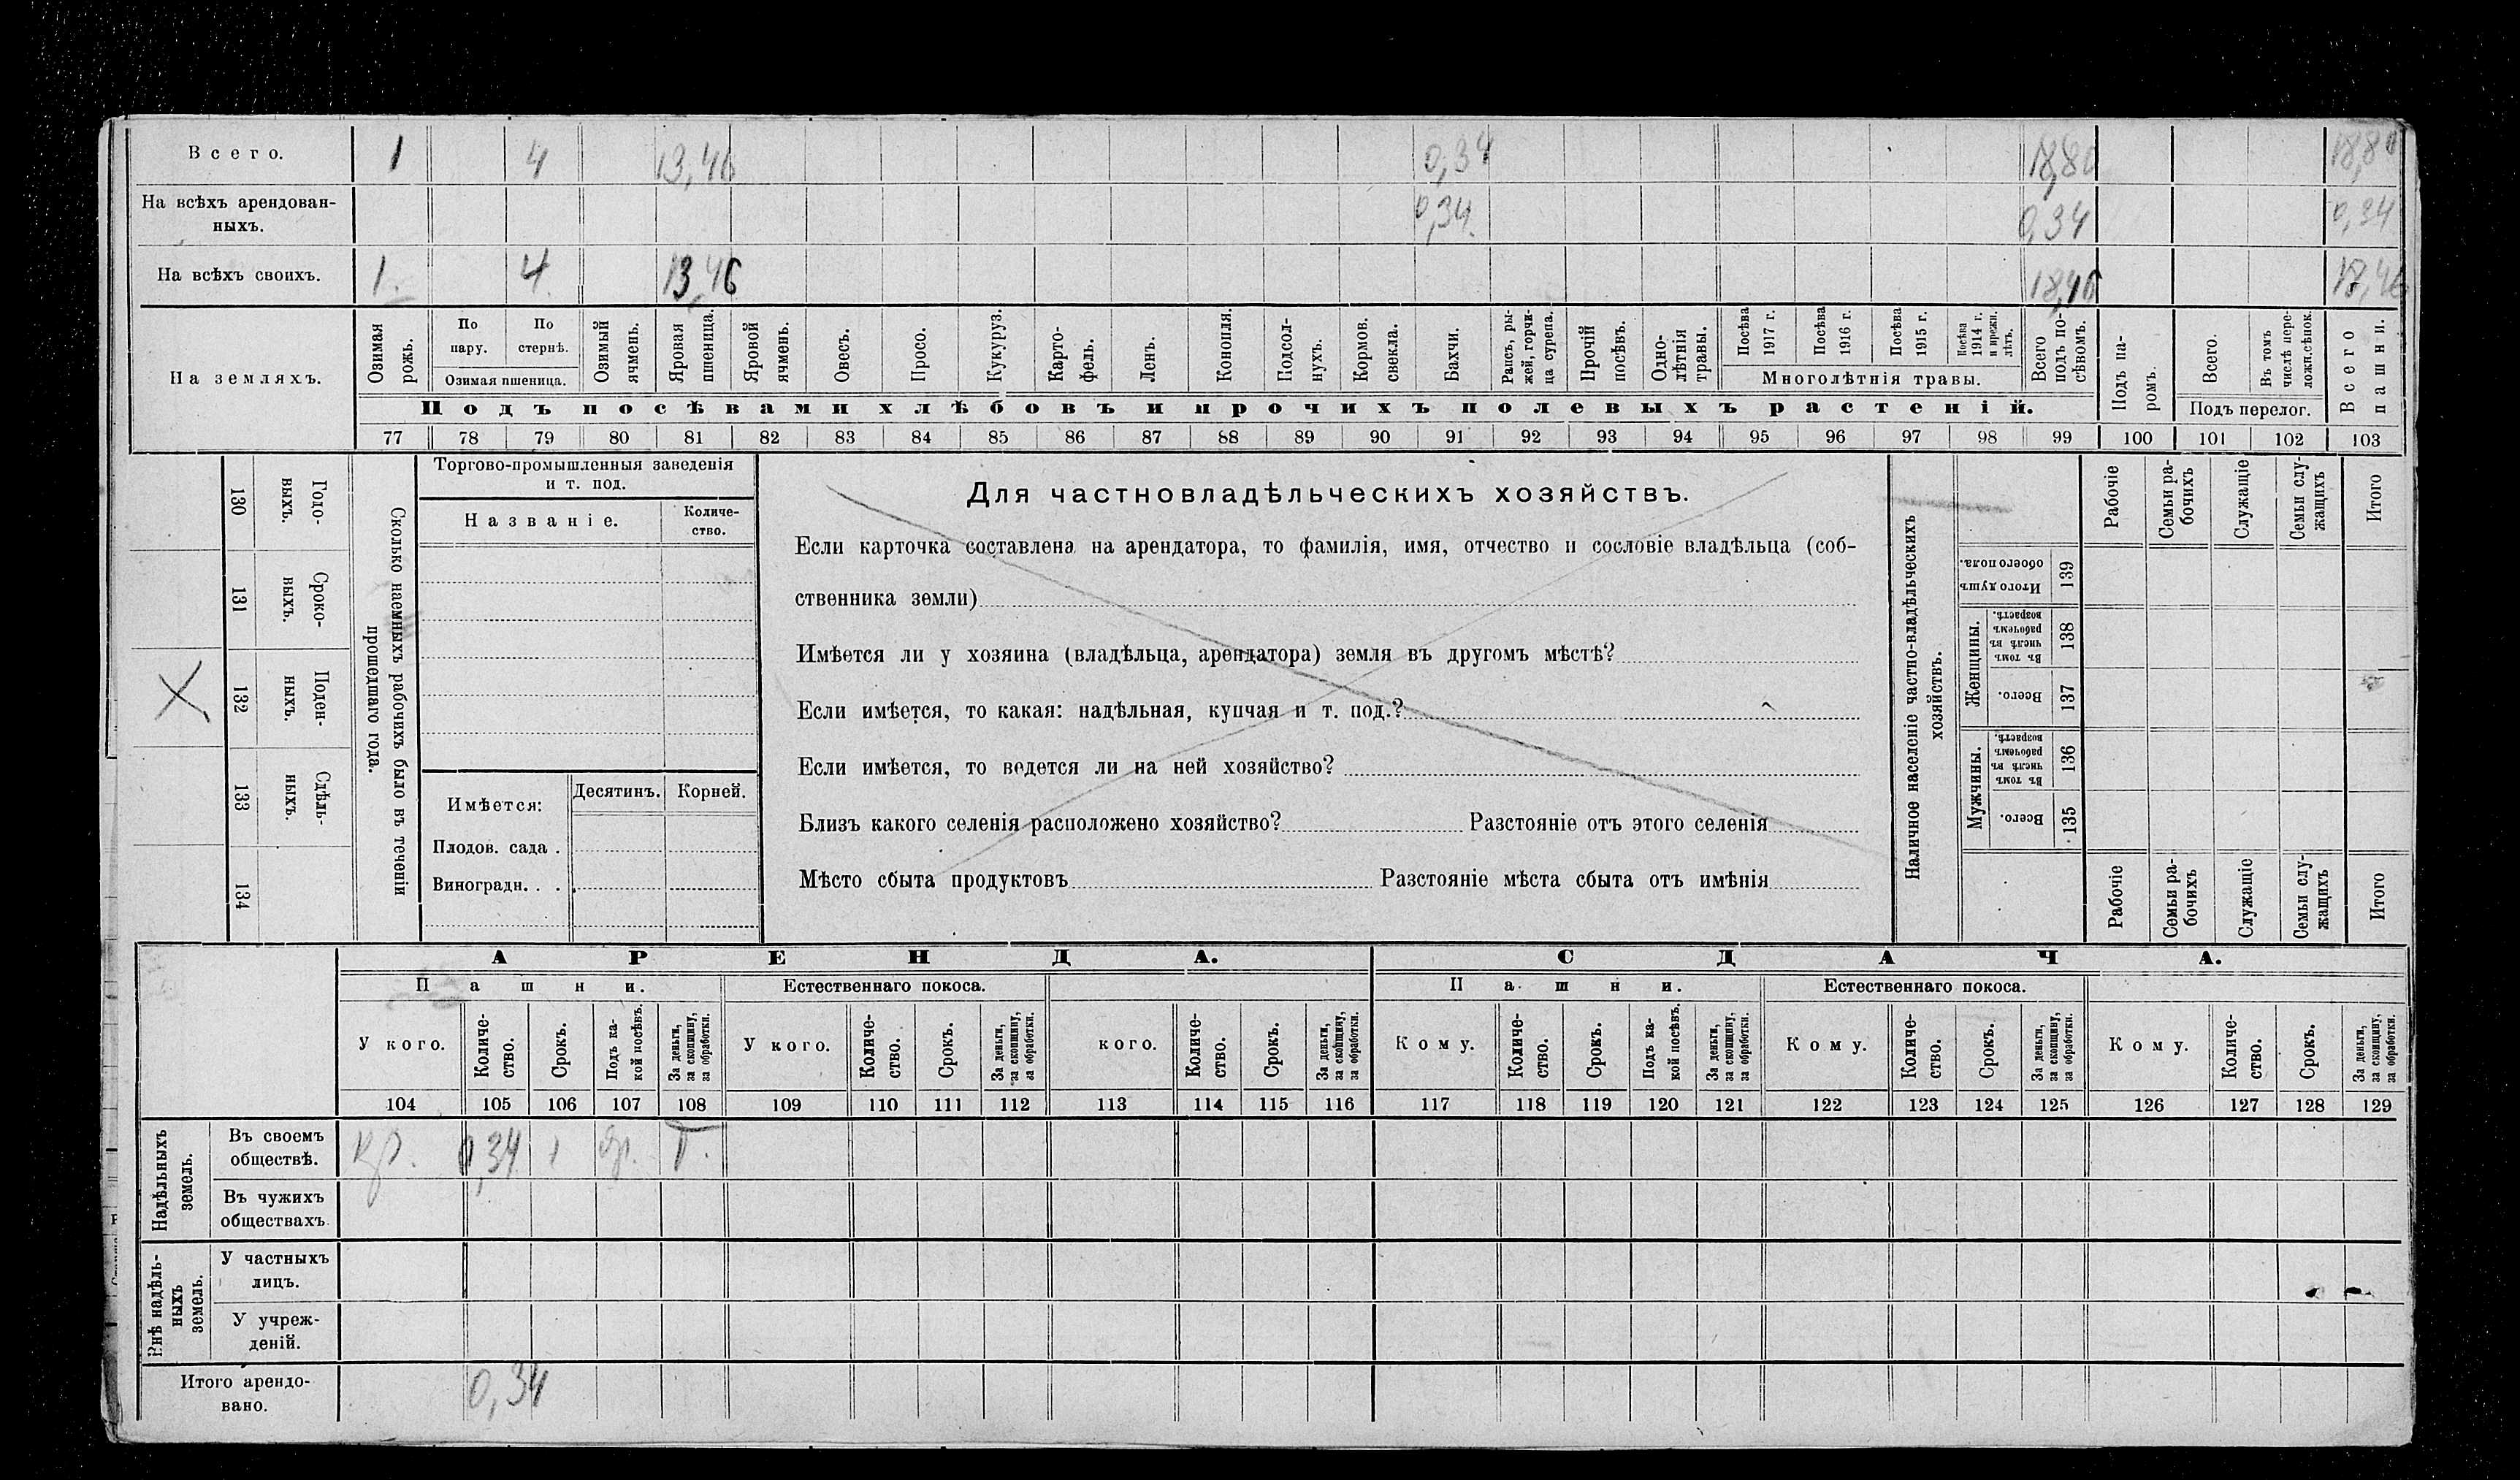 Всего. 1 4 13,46 0,34 18,80 18,80
На всѣхъ арендован-
ныхъ. 0,34. 0,34 0,34
На всѣхъ своихъ. 1. 4. 13,46 18,46 18,46
На земляхъ.
Озимая рожь.
По пару.
По стернѣ.
Озимая пшеница.
Озимый ячмень.
Яровая пшеница.
Яровой ячмень.
Овесъ.
Просо.
Кукуруз.
Карто-
фель.
Ленъ.
Конопля.
Подсол-
нухъ.
Кормов. свекла.
Бахчи.
Рапсъ, ры-
жей, горчи-
ца сурепа.
Прочій посѣвъ.
Одно-
лѣтнія травы.
Посѣва 1917 г.
Посѣва 1916 г.
Посѣва 1915 г.
Посѣва 1914 г. и прежн. лѣтъ.
Многолѣтнія травы.
Всего подъ по-
сѣвомъ.
Подъ посѣвами хлѣбовъ и прочихъ полевыхъ растеній.
Подъ па-
ромъ.
Всего.
Въ томъ числѣ пере-
ложн.сѣнок.
Подъ перелог.
Всего пашни.
77 78 79 80 81 82 83 84 85 86 87 88 89 90 91 92 93 94 95 96 97 98 99 100 101 102 103
130 Годо-
выхъ.
131 Сроко-
ныхъ.
132 Поден-
ныхъ.
133 Сдѣль-
ныхъ.
134
Сколько наемныхъ рабочихъ было въ теченіи
прошедшаго года.
Торгово-промышленныя заведенія
и т. под.
Названіе.
Количе-
ство.
Имѣется:
Десятинъ.
Корней.
Плодов. сада .
Виноградн. . .
Для частновладѣльческихъ хозяйствъ.
Если карточка составлена на арендатора, то фамилія, имя, отчество и сословіе владѣльца (соб-
ственника земли)
Имѣется ли у хозяина (владѣльца, арендатора) земля въ другомъ мѣстѣ?
Если имѣется, то какая: надѣльная, купчая и т. под.?
Если имѣется, то ведется ли на ней хозяйство?
Близъ какого селенія расположено хозяйство? Разстояніе отъ этого селенія
Мѣсто сбыта продуктовъ Разстояніе мѣста сбыта отъ имѣнія
Наличное населеніе частно-владѣльческихъ
хозяйствъ.
Рабочіе
Семьи ра-
бочихъ
Служащіе
Семьи слу-
жащихъ
Итого
Итого душъ обоего пола. 139
Женщины.
Въ томъ числѣ въ рабочемъ возрастѣ. 138
Всего. 137
Мужчины.
Въ томъ числѣ въ рабочемъ возрастѣ. 136
Всего. 135
Рабочіе
Семьи ра-
бочихъ
Служащіе
Семьи слу-
жащихъ
Итого
АРЕНДА. СДАЧА.
Пашни. Естественнаго покоса. Пашни. Естественнаго покоса.
У кого.
Количе-
ство.
Срокъ.
Подъ ка-
кой посѣвъ.
За деньги,
за скопщину,
за обработки.
У кого.
Количе-
ство.
Срокъ.
За деньги,
за скопщину,
за обработки.
кого.
Количе-
ство.
Срокъ.
За деньги,
за скопщину,
за обработки.
Кому.
Количе-
ство.
Срокъ.
Подъ ка-
кой посѣвъ.
За деньги,
за скопщину,
за обработки.
Кому.
Количе-
ство.
Срокъ.
За деньги,
за скопщину,
за обработки.
Кому.
Количе-
ство.
Срокъ.
За деньги,
за скопщину,
за обработки.
104 105 106 107 108 109 110 111 112 113 114 115 116 117 118 119 120 121 122 123 124 125 126 127 128 129
Надѣльныхъ
земель.
Въ своемъ
обществѣ. кр. 0,34 1
Въ чужихъ
обществахъ
Внѣ надѣль-
ныхъ
земель.
У частныхъ
лицъ.
У учреж-
деній.
Итого арендо-
вано. 0,34